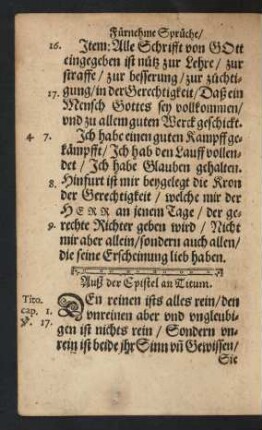 Fürnehme Sprüche/
16. Item: Alle Schrifft von GOtt
eingegeben ist nütz zur Lehre / zur
straffe / zur besserung / zur züchti-
17. gung / in der Gerechtigkeit / Daß ein
Mensch Gottes sey vollkommen /
vnd zu allem guten Werck geschickt.
4. 7. Ich habe einen guten Kampff ge-
kämpfft / Ich hab den Lauff vollen-
det / Ich habe Glauben gehalten.
8. Hinfurt ist mir beygelegt die Kron
der Gerechtigkeit / welche mir der
HERR an jenem Tage / der ge-
9. rechte Richter geben wird / Nicht
mir aber allein / sondern auch allen /
die seine Erscheinung lieb haben.
Auß der Epistel an Titum.
Tito. DEn reinen ists alles rein / den
cap. 1. Vnreinen aber vnd vngleubi-
V. 17. gen ist nichts rein / Sondern vn-
rein ist beide jhr Sinn vñ Gewissen /
Sie